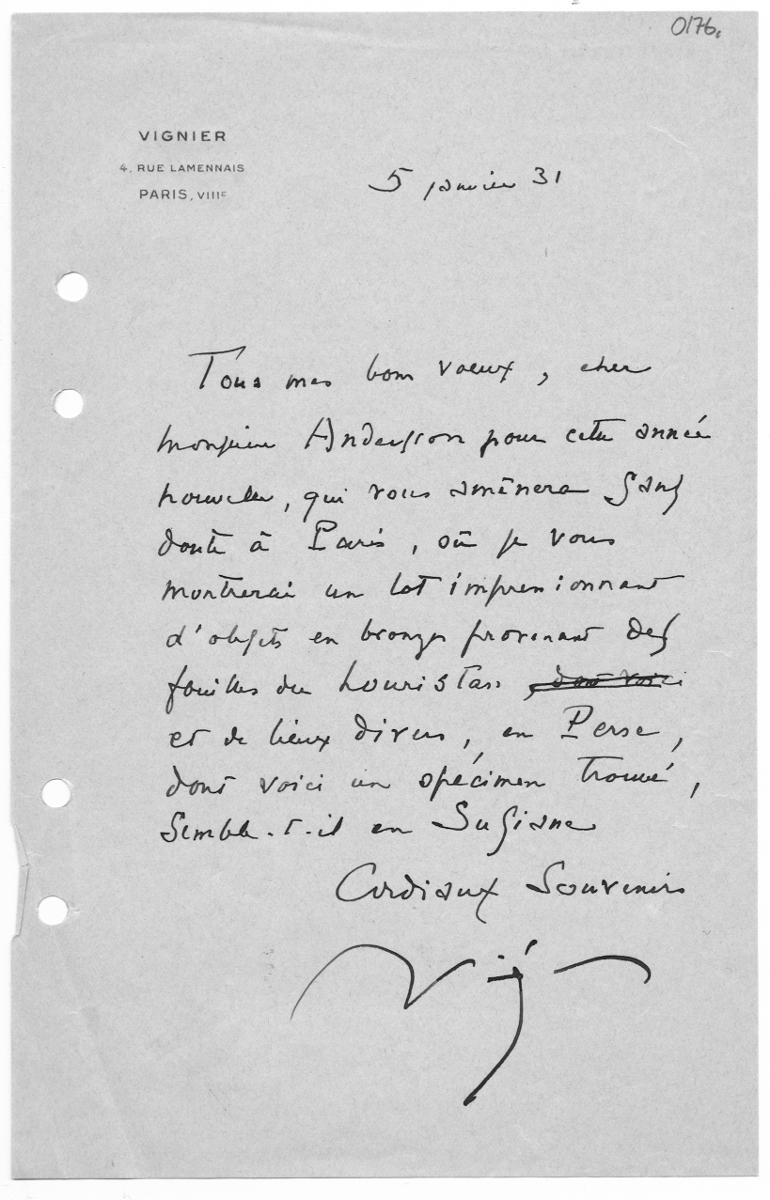 0176.
VIGNIER
4, RUE LAMENNAIS
PARIS, VIIIᴱ
5 janvier 31
Tous mes bons voeux, cher
monsieur Andersson pour cette année
nouvelle, qui vous amènera sans
doute à Paris, où je vous
montrerai un lot impressionnant
d'objets en bronze provenant des
fouilles du Louristan, dont voici
et de lieux divers, en Perse,
dont voici un spécimen trouvé,
semble-t-il en Susiane
Cordiaux Souvenirs